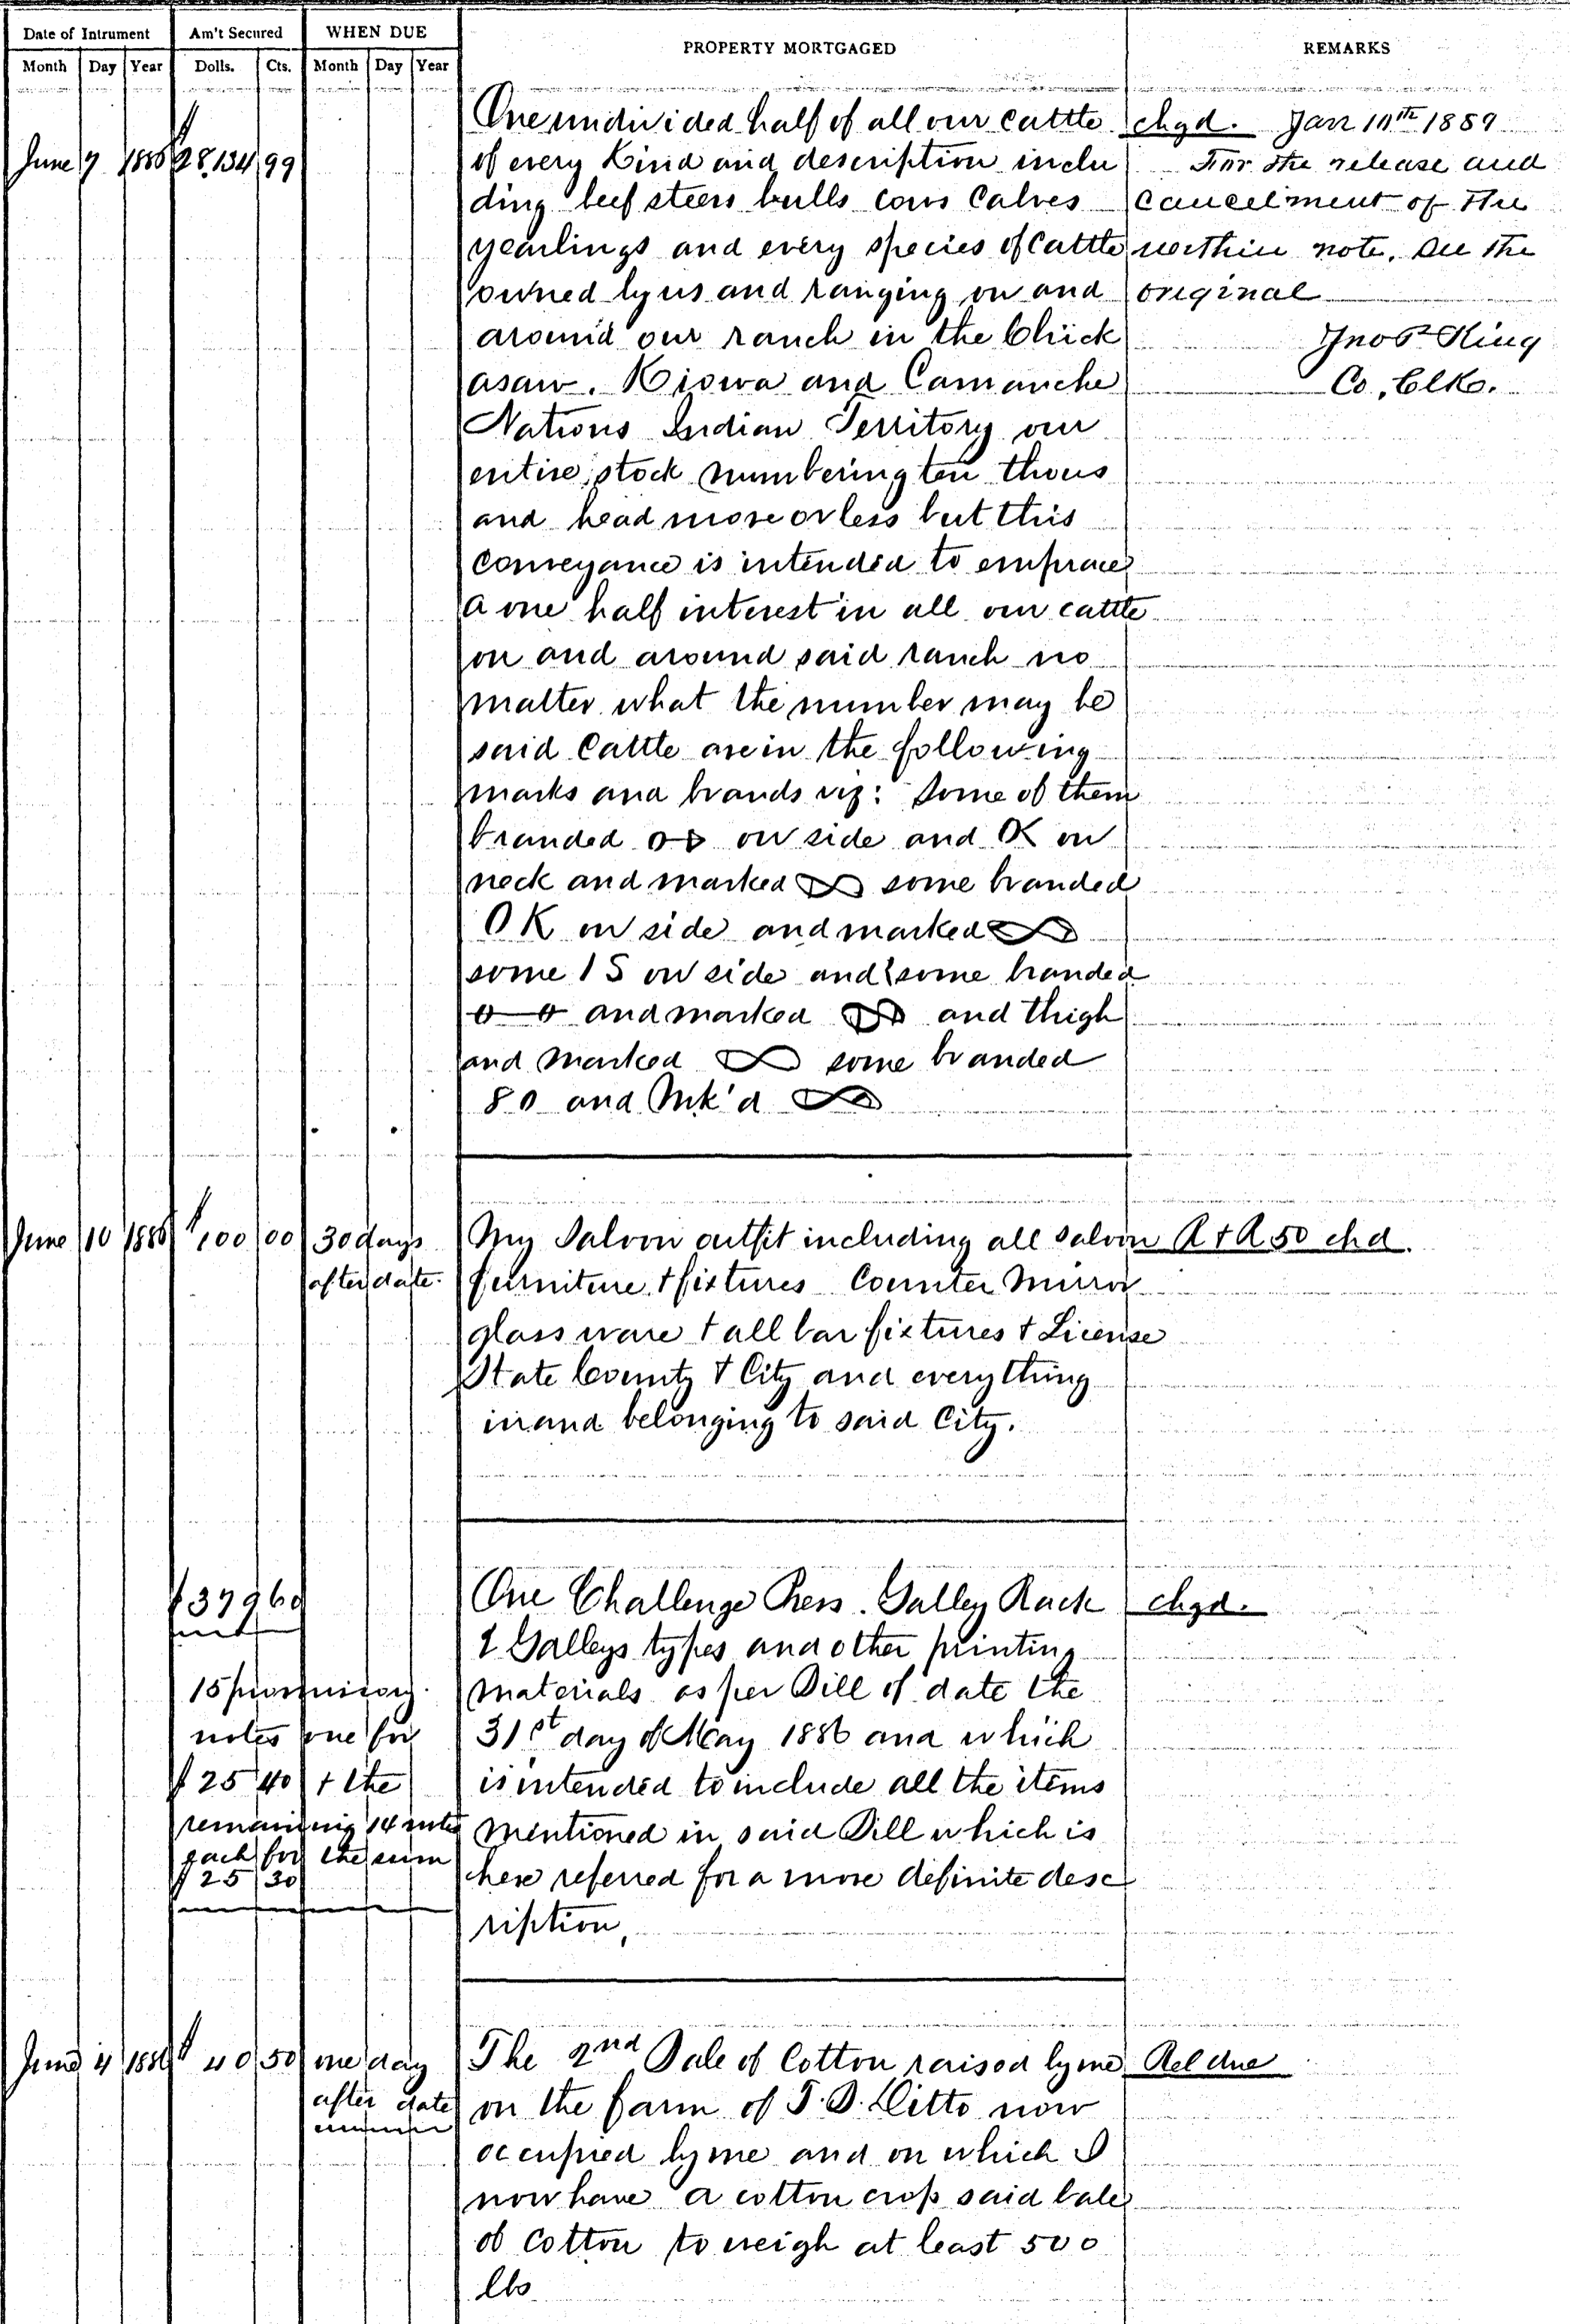 Date of Intrument Am't Secured WHEN DUE PROPERTY MORTGAGED REMARKS
Month Day Year Dolls. Cts. Month Day Year
June 7 1886 $28,134 99
One undivided half of all our cattle
of every Kind and description inclu
ding beef steers bulls cows Calves
yearlings and every species of Cattle
owned by us and ranging on and
around our ranch in the Chick
asaw. Kiowa and Camanche
Nations Indian Territory our
entire stock numbering ten thous
and head more or less but this
conveyance is intended to embrace
a one half interest in all our cattle
on and around said ranch no
matter what the number may be
said Cattle are in the following
marks and brands viz: Some of them
branded on side and OK on
neck and marked some branded
OK on side and marked
some 1S on side and some branded
and marked and thigh
and marked some branded
80 and Mk'd
chgd. Jan 10th 1889
For the release and
Cancelment of the
within note. See the
original
Jno P King
Co. Clk.
June 10 1886 $100 00 30 days
after date.
My Saloon outfit including all saloon
furniture + fixtures Counter Mirror
glass ware + all bar fixtures + License
State County + City and everything
in and belonging to said City.
R + R 50 chd.
$379 60
15 promissory
notes one for
$25 40 + the
remaining 14 notes
each for the sum
$25 30
One Challenge Press. Galley Rack
2 Galleys types and other printing
materials as per Bill of date the
31st day of May 1886 and which
is intended to include all the items
mentioned in said Bill which is
here referred for a more definite desc
ription,
chgd.
June 4 1886 $40 50 one day
after date
The 2nd Bale of Cotton raised by me
on the farm of J. B. Ditto now
occupied by me and on which I
now have a cotton crop said bale
of Cotton to weigh at least 500
lbs
Rel due